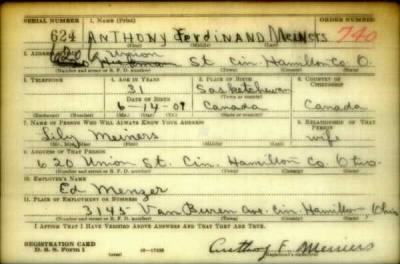 SERIAL NUMBER 1. NAME (Print) ORDER NUMBER
624 ANTHONY Ferdinand Meiners 740
(First) (Middle) (Last)
2. ADDRESS (Print)
620 Union St. Cin. Hamilton Co. O.
(Number and street or R. F. D. number) (Town) (County) (State)
3. TELEPHONE 4. AGE IN YEARS 5. PLACE OF BIRTH 6. COUNTRY OF CITIZENSHIP
31 Saskatchewan
DATE OF BIRTH (Town or county)
6-14-09 Canada Canada
(Mo.) (Day) (Yr.) (State or country)
7. NAME OF PERSON WHO WILL ALWAYS KNOW YOUR ADDRESS 8. RELATIONSHIP OF THAT PERSON
Lily Meiners wife
(Mr., Mrs., Miss) (First) (Middle) (Last)
9. ADDRESS OF THAT PERSON
620 Union St. Cin. Hamilton Co. Ohio.
(Number and street or R. F. D. number) (Town) (County) (State)
10. EMPLOYER'S NAME
Ed Menzer
11. PLACE OF EMPLOYMENT OR BUSINESS
3145 Van Buren Ave. Cin. Hamilton, Ohio
(Number and street or R. F. D. number) (Town) (County) (State)
I AFFIRM THAT I HAVE VERIFIED ABOVE ANSWERS AND THAT THEY ARE TRUE.
REGISTRATION CARD
D. S. S. Form 1 Anthony F. Meiners
(Registrant's signature)